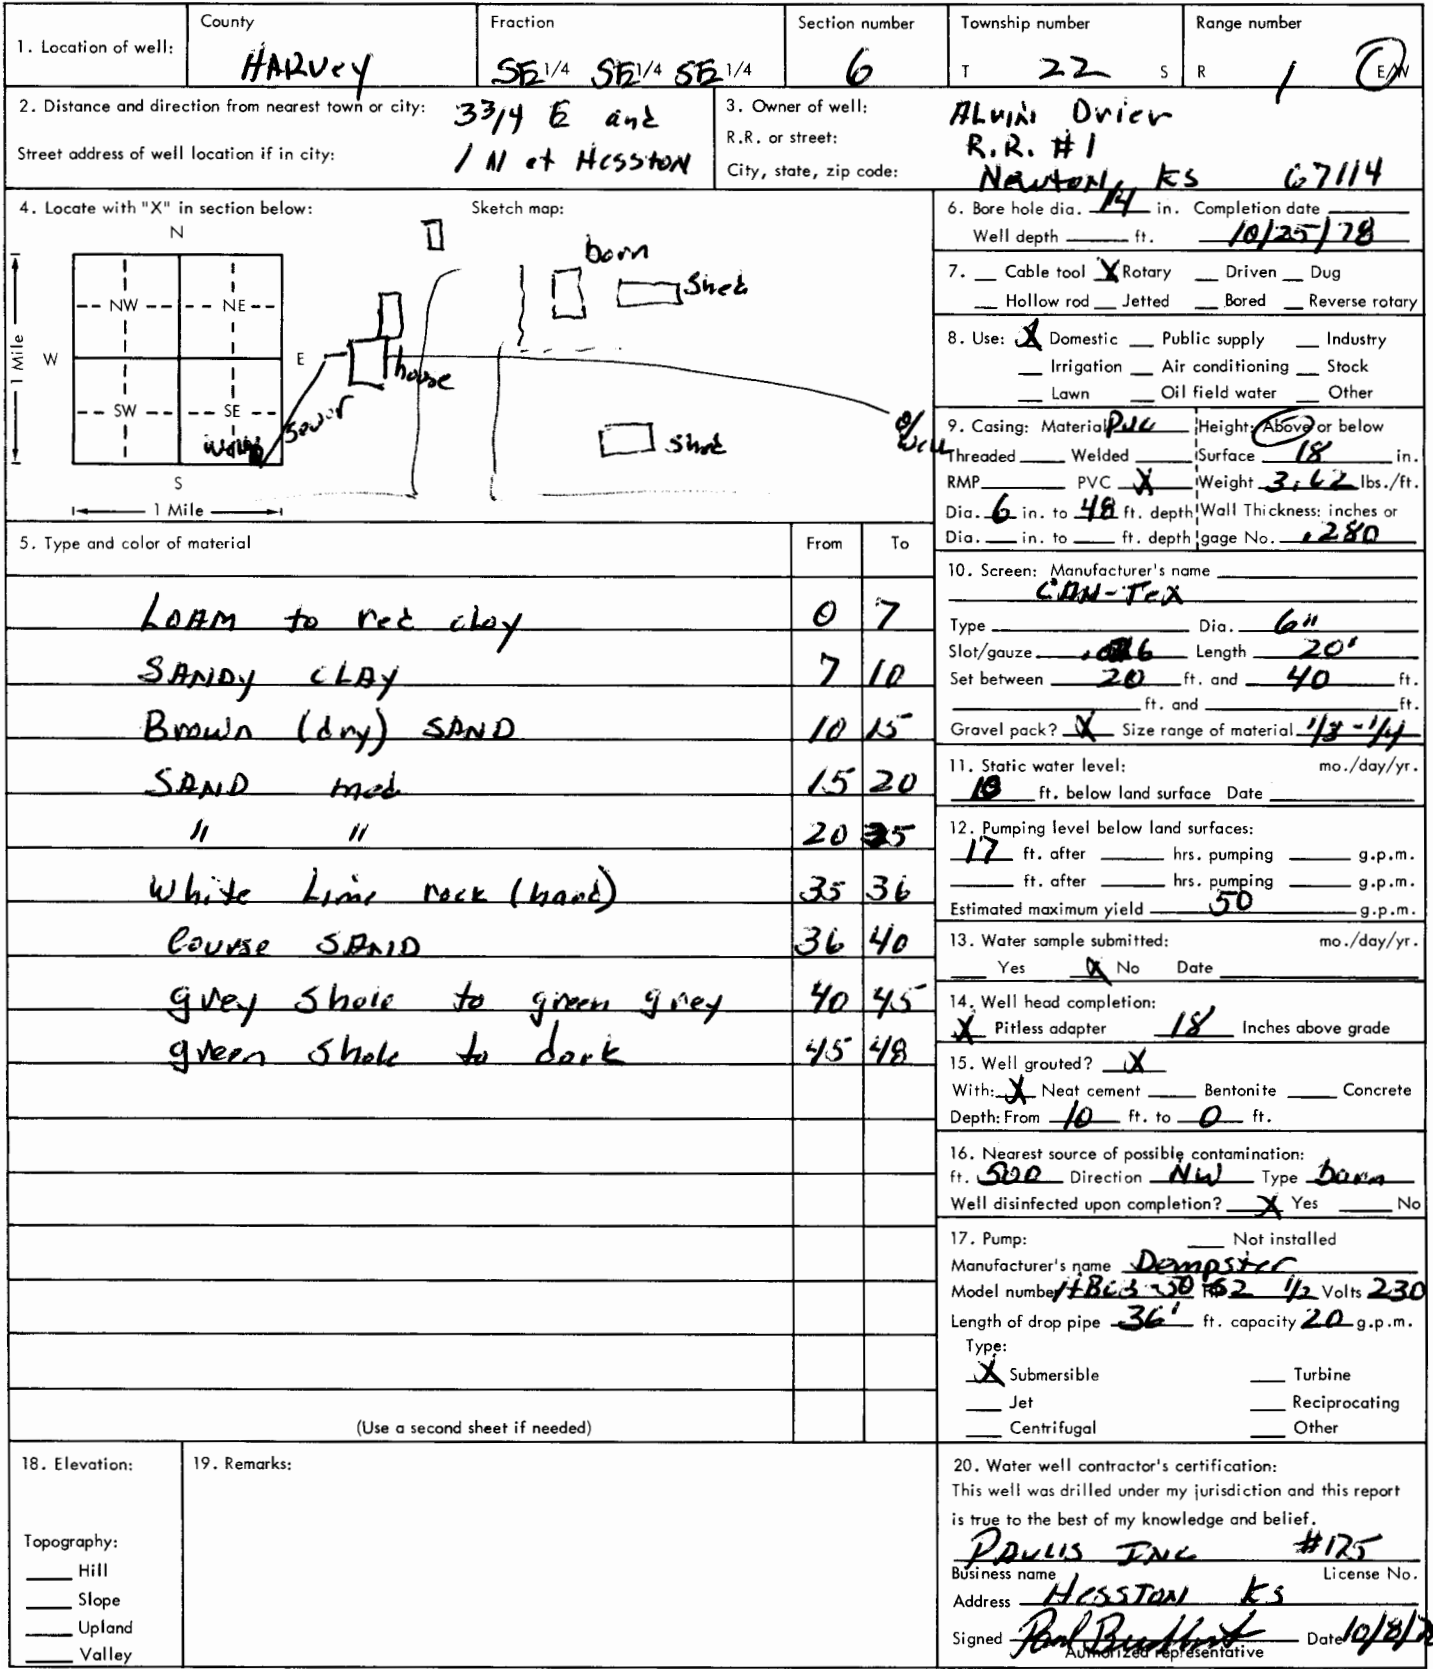 1. Location of well: County HARVEY Fraction SE 1/4 SE 1/4 SE 1/4 Section number 6 Township number T 22 S Range number R 1 E/W
2. Distance and direction from nearest town or city: 3 3/4 E and
Street address of well location if in city: 1 N of Hesston
3. Owner of well: Alvin Drier
R.R. or street: R.R. #1
City, state, zip code: Newton, KS 67114
4. Locate with "X" in section below: Sketch map:
N
NW NE
W E
SW SE
S
1 Mile
1 Mile
barn
Shed
house
Sewer
Shed
well
5. Type and color of material From To
LOAM to red clay 0 7
SANDY CLAY 7 10
Brown (dry) SAND 10 15
SAND med 15 20
" " 20 35
White Lime rock (hard) 35 36
Course SAND 36 40
grey shale to green grey 40 45
green shale to dark 45 48
(Use a second sheet if needed)
6. Bore hole dia. 14 in. Completion date
Well depth ft. 10/25/78
7. Cable tool X Rotary Driven Dug
Hollow rod Jetted Bored Reverse rotary
8. Use: X Domestic Public supply Industry
Irrigation Air conditioning Stock
Lawn Oil field water Other
9. Casing: Material PVC Height: Above or below
Threaded Welded Surface 18 in.
RMP PVC X Weight 3.62 lbs./ft.
Dia. 6 in. to 48 ft. depth Wall Thickness: inches or
Dia. in. to ft. depth gage No. .280
10. Screen: Manufacturer's name
CAN-TEX
Type Dia. 6"
Slot/gauze Length 20'
Set between 20 ft. and 40 ft.
ft. and ft.
Gravel pack? X Size range of material 1/8 - 1/4
11. Static water level: mo./day/yr.
10 ft. below land surface Date
12. Pumping level below land surfaces:
17 ft. after hrs. pumping g.p.m.
ft. after hrs. pumping g.p.m.
Estimated maximum yield 50 g.p.m.
13. Water sample submitted: mo./day/yr.
Yes X No Date
14. Well head completion:
X Pitless adapter 18 Inches above grade
15. Well grouted? X
With: X Neat cement Bentonite Concrete
Depth: From 10 ft. to 0 ft.
16. Nearest source of possible contamination:
ft. 500 Direction NW Type barn
Well disinfected upon completion? X Yes No
17. Pump: Not installed
Manufacturer's name Dempster
Model number 1/2 Volts 230
Length of drop pipe 36' ft. capacity 20 g.p.m.
Type:
X Submersible Turbine
Jet Reciprocating
Centrifugal Other
18. Elevation:
Topography:
Hill
Slope
Upland
Valley
19. Remarks:
20. Water well contractor's certification:
This well was drilled under my jurisdiction and this report
is true to the best of my knowledge and belief.
PAULIS INC #175
Business name License No.
Address Hesston Ks
Signed Date 10/8/
Authorized representative